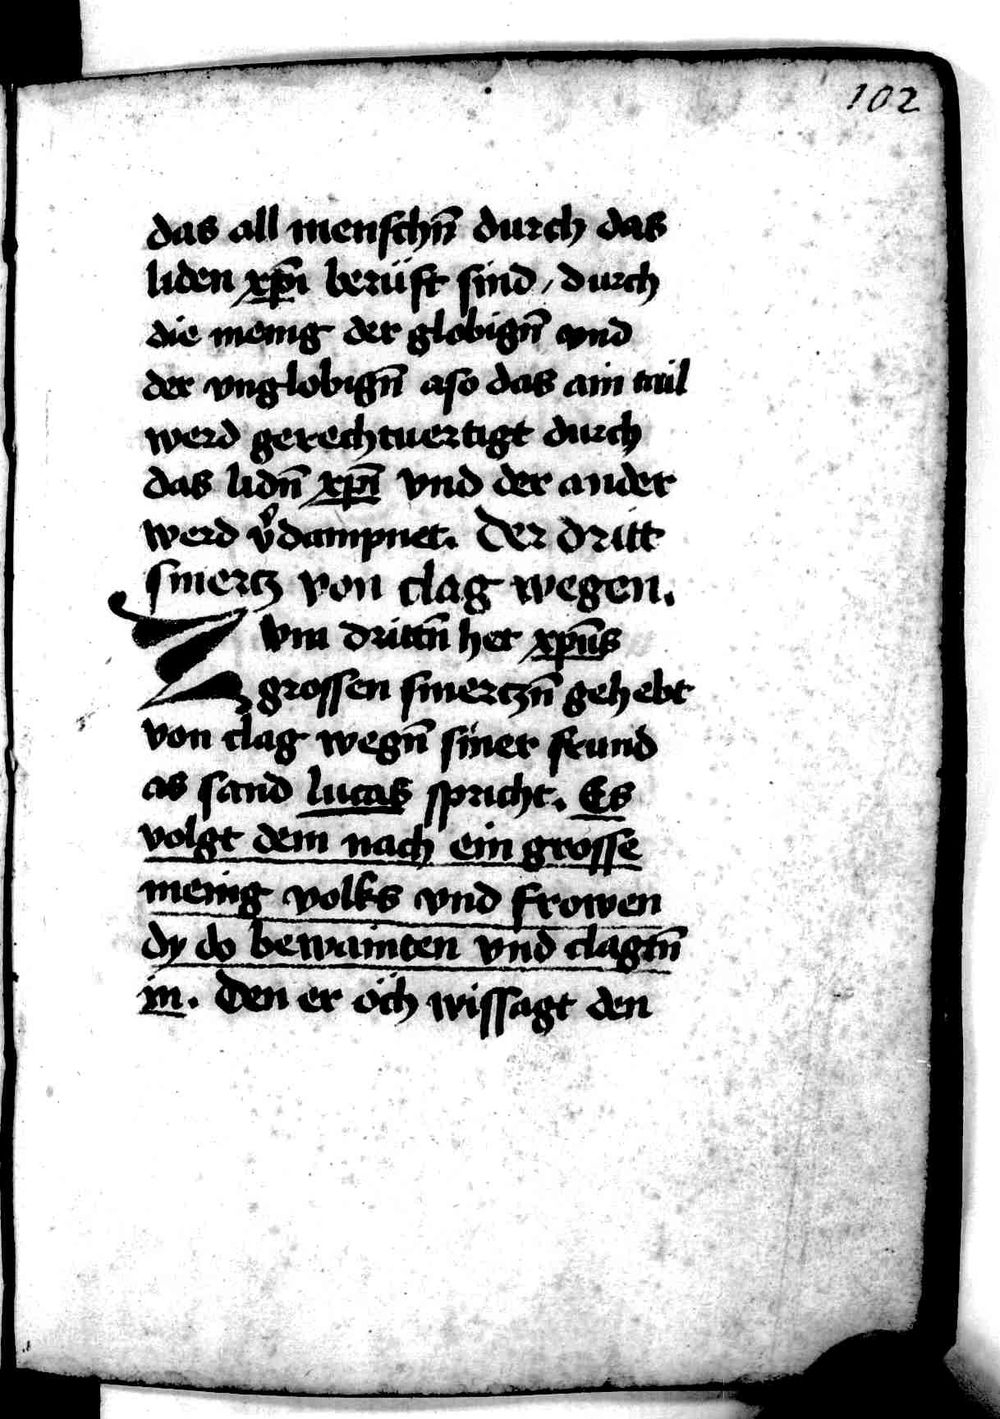 102
das all menschn̄ durch das
liden xp̄i berüft sind / durch
die menig der globign̄ vnd
der vnglobign̄ aso das ain tail
werd gerechtuertigt durch
das lidn̄ xp̄i vnd der ander
werd v̓dampnet. Der dritt
smertz von clag wegen.
Zum drittn̄ het xp̄us
grossen smertzn̄ gehebt
von clag wegn̄ siner frund
as sand lucas spricht. Es
volgt dem nach ein grosse
menig volks vnd frowen
dy do bewainten vnd clagtn̄
in. Den er och wissagt den